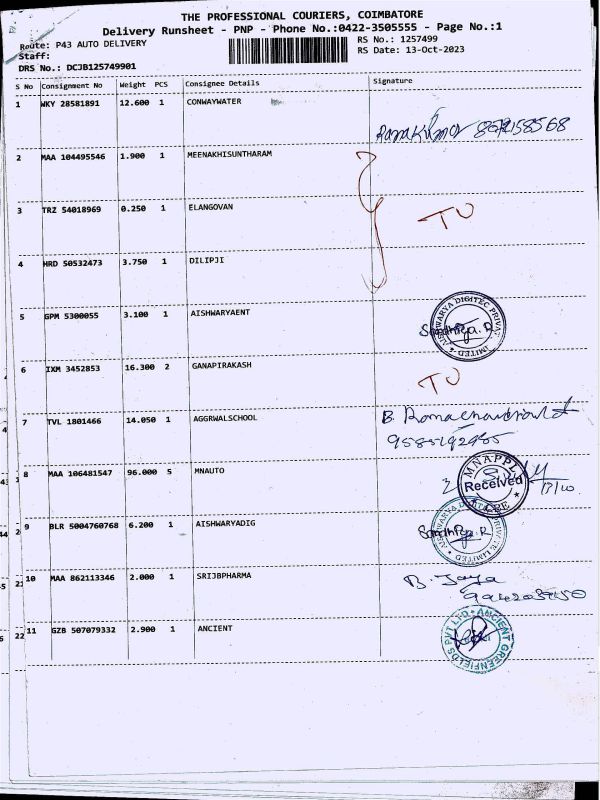 THE PROFESSIONAL COURIERS, COIMBATORE
Delivery Runsheet - PNP - Phone No.:0422-3505555 - Page No.:1
Route: P43 AUTO DELIVERY
RS No.: 1257499
Staff:
RS Date: 13-Oct-2023
DRS No.: DCJB125749901
S No Consignment No Weight PCS Consignee Details Signature
1 WKY 28581891 12.600 1 CONWAYWATER
2 MAA 104495546 1.900 1 MEENAKHISUNTHARAM
3 TRZ 54018969 0.250 1 ELANGOVAN
TO
4 HRD 50532473 3.750 1 DILIPJI
5 GPM 5300055 3.100 1 AISHWARYAENT
6 IXM 3452853 16.300 2 GANAPIRAKASH
TO
7 TVL 1801466 14.050 1 AGGRWALSCHOOL
8 MAA 106481547 96.000 5 MNAUTO
MNAPPL
Received
CBE
9 BLR 5004760768 6.200 1 AISHWARYADIG
10 MAA 862113346 2.000 1 SRIJBPHARMA
B. Jaya
11 GZB 507079332 2.900 1 ANCIENT
ANCIENT GREENFIELDS PVT LTD